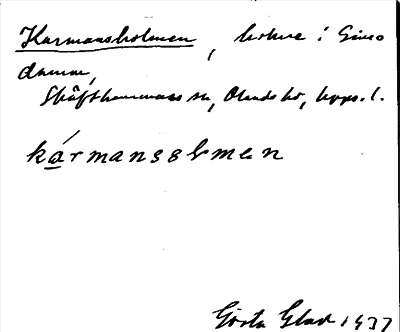 Karmansholmen, holme i Gimo
damm,
Skäfthammars sn, Olands hd, Upps. l.
kármansọlmen
Gösta Glad 1937